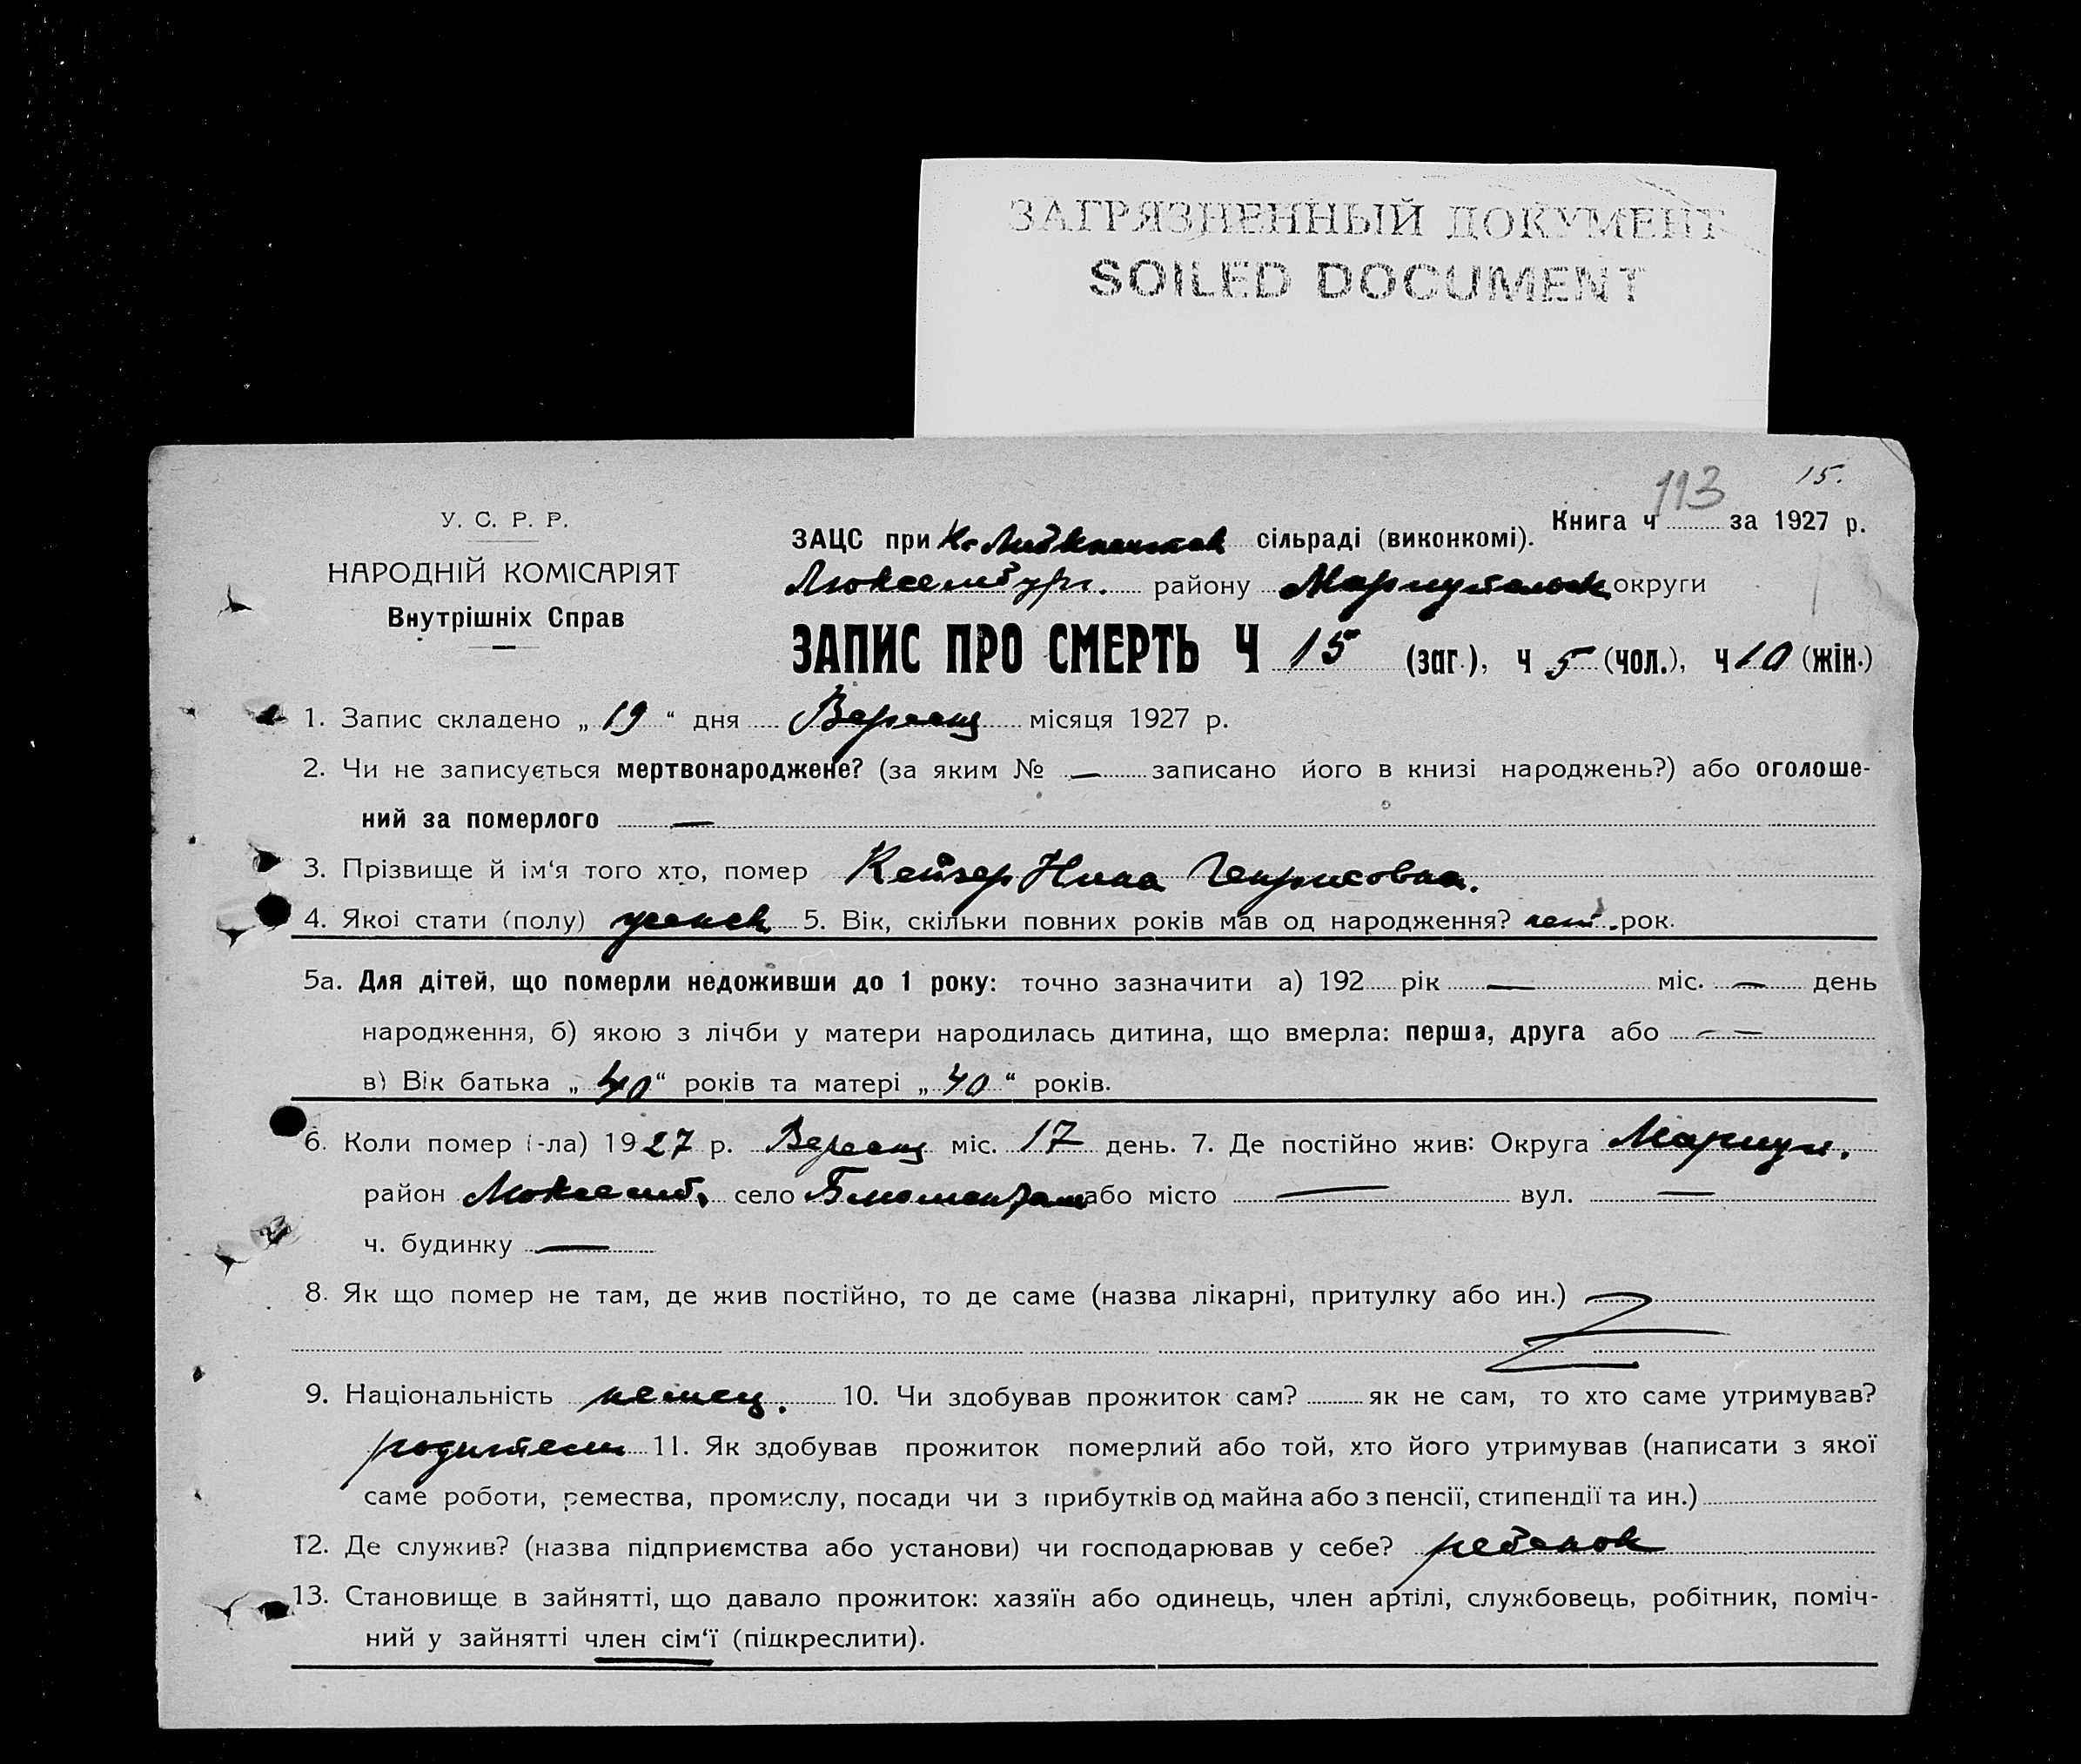 ЗАГРЯЗНЕННЫЙ ДОКУМЕНТ
SOILED DOCUMENT
113 15.
У. С. Р. Р.
НАРОДНІЙ КОМІСАРІЯТ
Внутрішніх Справ
Книга ч за 1927 р.
ЗАЦС при сільраді (виконкомі).
Люксембург. району Мариупольск. округи
ЗАПИС ПРО СМЕРТЬ Ч 15 (заг.), ч 5 (чол.), ч 10 (жін.)
1. Запис складено „ 19 “ дня місяця 1927 р.
2. Чи не записується мертвонароджене? (за яким № — записано його в книзі народжень?) або оголоше-
ний за померлого —
3. Прізвище й ім‘я того хто, помер Кейзер Нина Генриховна.
4. Якої стати (полу) женск. 5. Вік, скільки повних років мав од народження? рок.
5а. Для дітей, що померли недоживши до 1 року: точно зазначити а) 192 рік — міс. — день
народження, б) якою з лічби у матери народилась дитина, що вмерла: перша, друга або — —
в) Вік батька „ 40 “ років та матері „ 40 “ років.
6. Коли помер (-ла) 1927 р. міс. 17 день. 7. Де постійно жив: Округа Мариуп.
район Люксемб. село або місто — вул. —
ч. будинку —
8. Як що помер не там, де жив постійно, то де саме (назва лікарні, притулку або ин.)
9. Національність немец. 10. Чи здобував прожиток сам? як не сам, то хто саме утримував?
родители 11. Як здобував прожиток померлий або той, хто його утримував (написати з якої
саме роботи, ремества, промислу, посади чи з прибутків од майна або з пенсії, стипендії та ин.)
12. Де служив? (назва підприємства або установи) чи господарював у себе? ребенок
13. Становище в зайнятті, що давало прожиток: хазяїн або одинець, член артілі, службовець, робітник, поміч-
ний у зайнятті член сім‘ї (підкреслити).